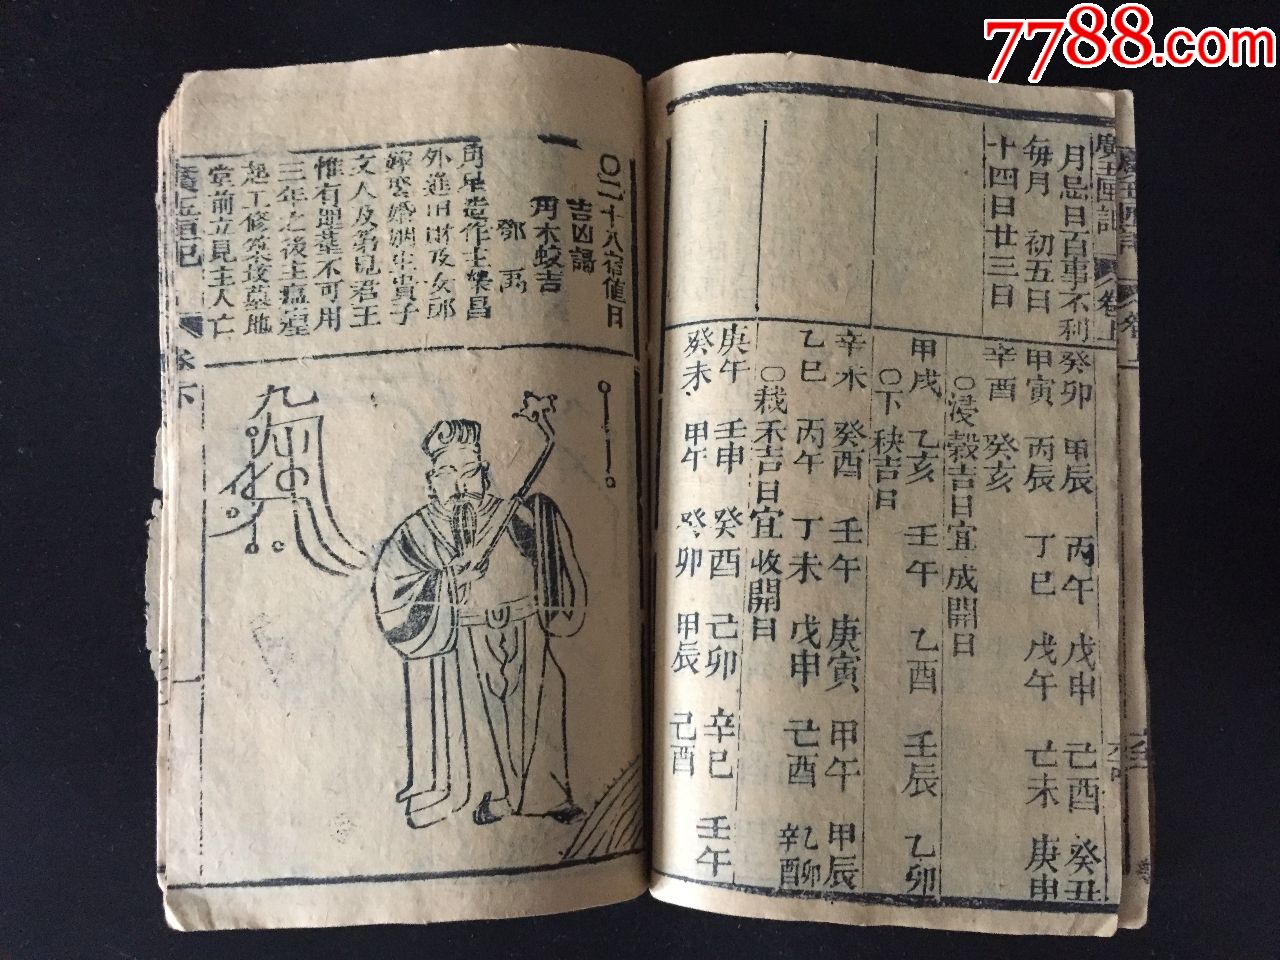 7788.com
廣玉匣記
卷上
月忌日百事不利
每月 初五日
十四日廿三日
癸卯 甲辰 丙午 戊申 己酉 癸丑
甲寅 丙辰 丁巳 戊午 己未 庚申
辛酉 癸亥
○浸穀吉日宜成開日
甲戌 乙亥 壬午 乙酉 壬辰 乙卯
○下秧吉日
辛未 癸酉 壬午 庚寅 甲午 甲辰
乙巳 丙午 丁未 戊申 己酉 乙卯 辛酉
○栽禾吉日宜收開日
庚午 壬申 癸酉 己卯 辛巳 壬午
癸未 甲午 癸卯 甲辰 己酉
○二十八宿值日
吉凶謁
角木蛟吉
鄧禹
角星造作主榮昌
外進田財及女郎
嫁娶婚姻生貴子
文人及第見君王
惟有埋葬不可用
三年之後主瘟瘟
起工修築坟墓地
堂前立見主人亡
九
廣玉匣記
卷下
一